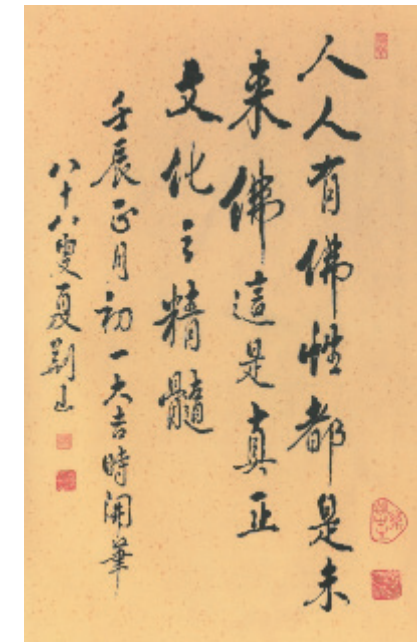 人人有佛性都是未
来佛這是真正
文化之精髓
壬辰正月初一大吉時開筆
八十八叟夏荆山